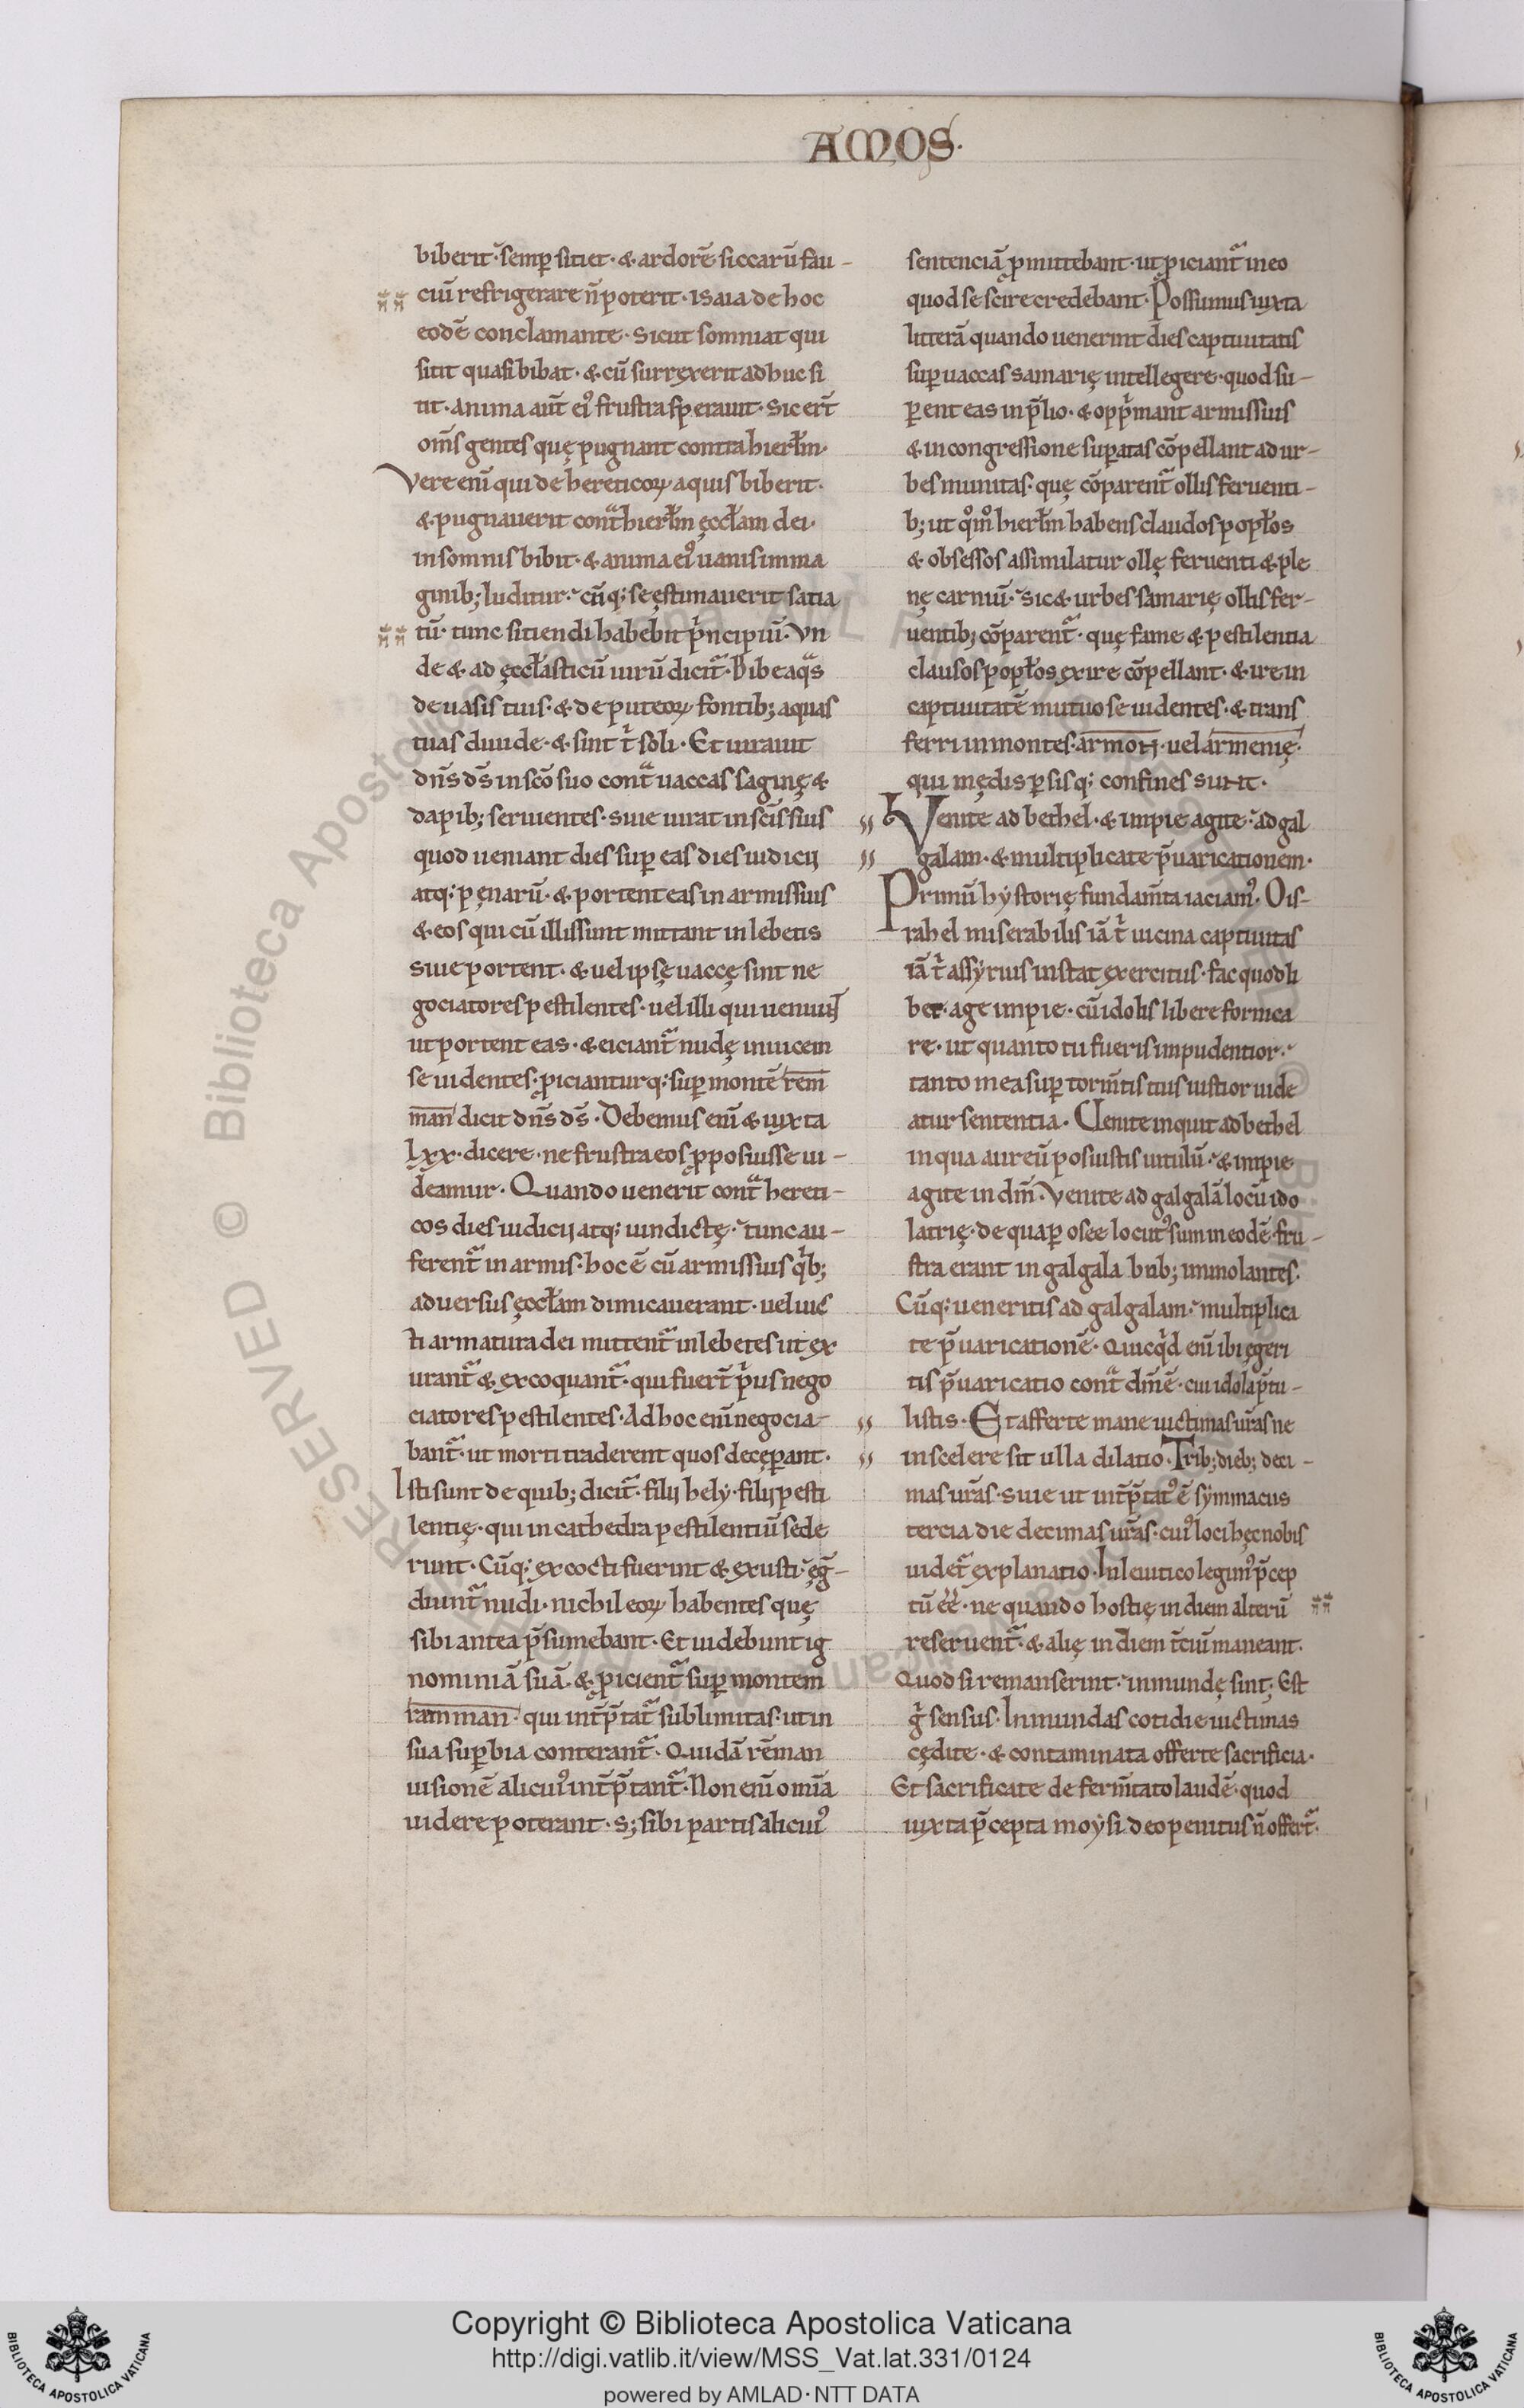 AMOS.
biberit· semꝑ sitiet· & ardorē siccarū fau-
ciū refrigerare n̄ poterit· isaia de hoc
eodē conclamante· Sicut somniat qui
sitit quasi bibat· & cū surrexerit adhuc si
tit· Anima aut̄ ei᷒ frustra sperauit· Sic er̄t
om̄s gentes quę pugnant contra hierłm·
Vere eni̅ qui de hereticoꝝ aquis biberit·
& pugnauerit contͣ hierłm ęccłam dei·
in somnis bibit· & anima ei᷒ uanis imma
ginib; luditur· cūq; se ęstimauerit satia
tū· tunc sitiendi habebit pͥncipiū· Vn
de & ad ęccłasticū uirū dicit᷑· Bibe aqͣs
de uasis tuis· & de puteoꝝ fontib; aquas
tuas diuide· & sint tͥ soli· Et iurauit
dn̄s ds̄ in sc̄o suo contͣ uaccas saginę &
dapib; seruientes· siue iurat in sc̄is suis
quod ueniant dies suꝑ eas dies iudicij
atq; pęnarū· & portent eas in armis suis
& eos qui cū illis sunt mittant in lebetis
siue portent· & uel ipsę uaccę sint ne
gociatores pestilentes· uel illi qui ueniūt
ut portent eas· & eiciant᷑ nudę inuicem
se uidentes· ꝓicianturq; suꝑ montē rem
man dicit dn̄s ds̄· Debemus eni̅ & iuxta
lxx· dicere· ne frustra eos ꝓposuisse ui-
deamur· Quando uenerit contͣ hereti-
cos dies iudicij atq; uindictę· tunc au-
ferent᷑ in armis· hoc ē cū armis suis qͥb;
aduersus ęccłam dimicauerant· uel iuc̄
ti armatura dei mittent᷑ in lebetes ut ex
urant᷑ & excoquant᷑· qui fuer̄t pͥus nego
ciatores pestilentes· Ad hoc eni̅ negocia-
bant᷑· ut morti traderent quos decęꝑant·
Isti sunt de quib; dicit᷑· filij hely· filij pesti
lentię· qui in cathedra pestilentiū sede
runt· Cūq; excocti fuerint & exusti· ęg̅-
diunt᷑ nudi· nichil eoꝝ habentes quę
sibi antea p̄sumebant· Et uidebunt ig
nominiā suā· & ꝓicient᷑ suꝑ montem
ramman· qui int̄p̄tat᷑ sublimitas· ut in
sua suꝑbia conterant᷑· Quidā rēman
uisionē alicui᷒ int̄p̄tant᷑· Non eni̅ om̄ia
uidere poterant· s; sibi partis alicui᷒
sentenciā ꝓmittebant· ut ꝓiciant᷑ in eo
quod se scire credebant· Possumus iuxta
litterā quando uenerint dies captiuitatis
suꝑ uaccas samarię intellegere· quod su-
ꝑent eas in p̄lio· & oppͥmant armis suis
& in congressione suꝑatas cōpellant ad ur-
bes munitas· quę cōparent᷑ ollis feruenti-
b; ut qͦmͦ hierłm habens claudos popłos
& obsessos assimilatur ollę feruenti & ple
nę carniū· sic & urbes samarię ollis fer-
uentib; cōparent᷑· quę fame & pestilentia
clausos popłos exire cōpellant· & ire in
captiuitatē mutuo se uidentes· & trans
ferri in montes armori· uel armenię·
qui mędis ꝑsisq; confines sunt·
b Venite ad bethel· & impie agite· ad gal
galam· & multiplicate p̄uaricationem·
Primū hystorię fundam̄ta iaciam᷒· O is-
rahel miserabilis iā tͥ uicina captiuitas
iā tͥ assyrius instat exercitus· fac quod li
bet· age impie· cū idolis libere fornica
re· ut quanto tu fueris impudentior·
tanto mea suꝑ torm̄tis tuis iustior uide
atur sententia· Venite inquit ad bethel
in qua aureū posuistis uitulū· & impie
agite in dm̄· Venite ad galgalā locū ido
latrię· de qua ꝑ osee locut᷒ sum in eodē· fru-
stra erant in galgala bub; immolantes·
Cūq; ueneritis ad galgalam· multiplica
te p̄uaricationē· Quicqͥd eni̅ ibi ęgeri
tis p̄uaricatio contͣ dm̄ ē· cui idola p̄tu-
listis· Et afferte mane uictimas ur̄as ne
in scelere sit ulla dilatio· Trib; dieb; deci-
mas ur̄as· siue ut int̄p̄tat᷒ ē symmacus
tercia die decimas ur̄as· cui᷒ loci hęc nobis
uidet᷑ explanatio· In leuitico legim᷒ p̄cep
tū eē· ne quando hostię in diem alterū
reseruent᷑· & alię in diem t̄ciū maneant·
Quod si remanserint· inmundę sint· Est
gͥ sensus· Inmundas cotidie uictimas
cędite· & contaminata offerte sacrificia·
Et sacrificate de ferm̄tato laudē· quod
iuxta p̄cepta moysi deo penitus n̄ offert᷑·
Copyright © Biblioteca Apostolica Vaticana
http://digi.vatlib.it/view/MSS_Vat.lat.331/0124
powered by AMLAD·NTT DATA
BIBLIOTECA APOSTOLICA VATICANA
BIBLIOTECA APOSTOLICA VATICANA